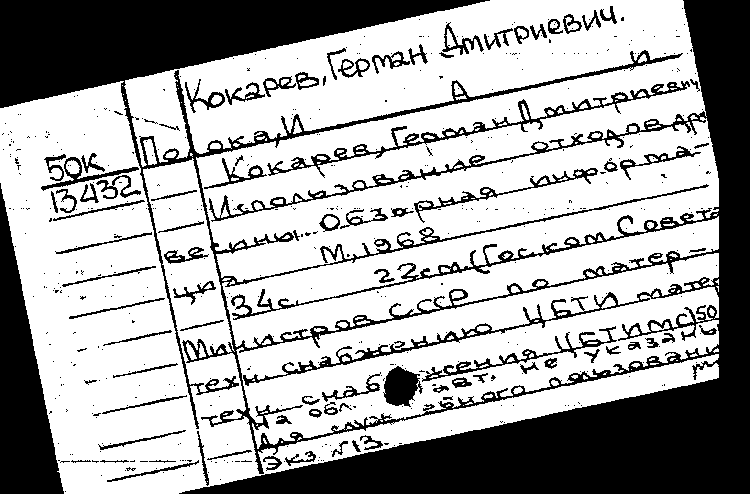 Кокарев, Герман Дмитриевич.
50К
13432
И А И
Кокарев, Герман Дмитриевич
Использование отходов дре
весины. Обзорная информа-
ция. М., 1968
34с. 22см. (Гос. ком. Совета
Министров СССР по матер.-
техн. снабжению. ЦБТИ матер
техн. снабжения. ЦБТИМС) 50
На обл. авт. не указаны
Для служебного пользования
Экз №13.